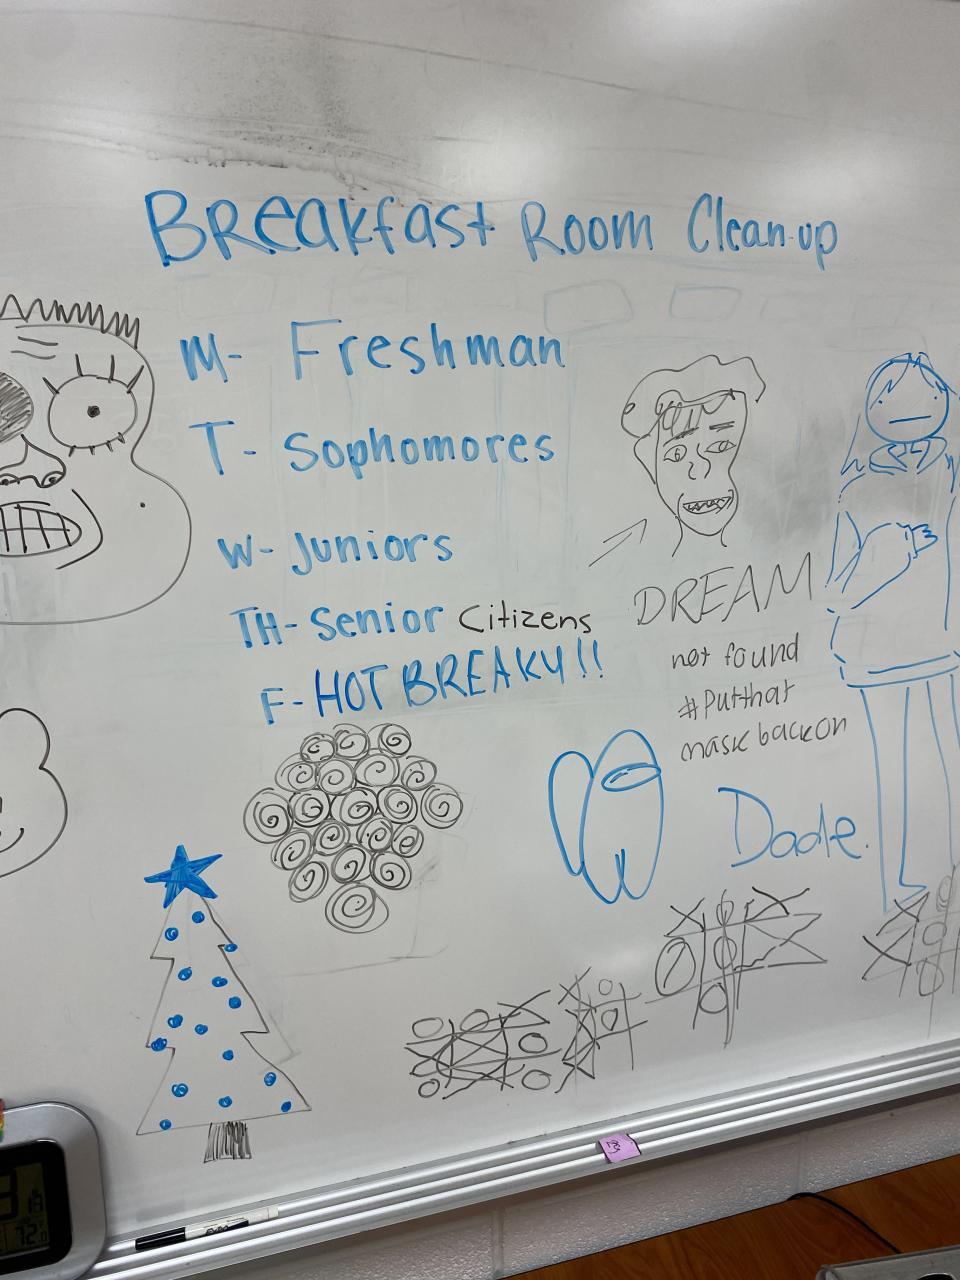 Breakfast Room Clean-up
M- Freshman
T- Sophomores
W- Juniors
TH- Senior Citizens
F- HOT BREAKY!!
DREAM
not found
#Putthat
mask back on
Dade.